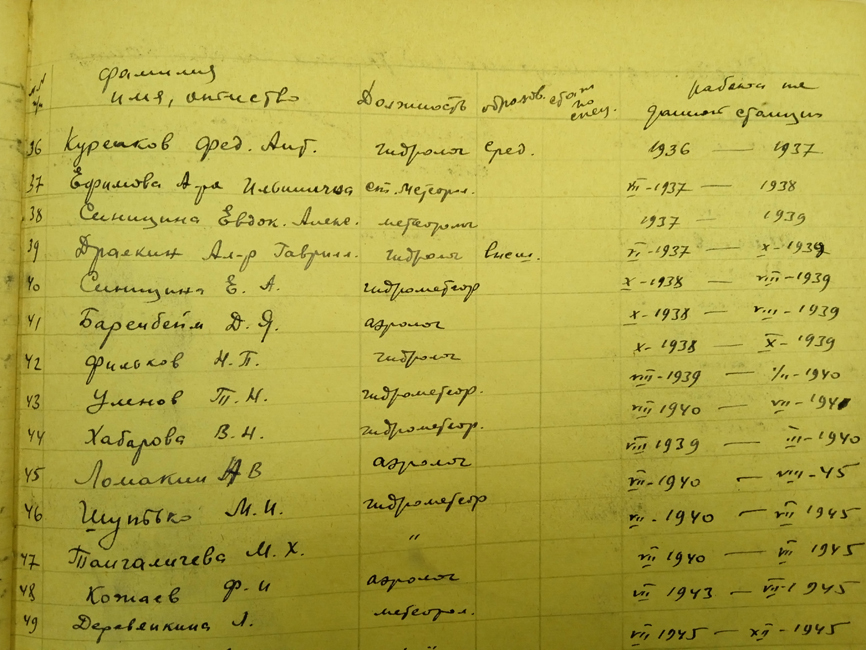 № п/п фамилия имя, отчество Должность образов. стаж по спец. работа на данной станции
36 Куренков Фед. Ант. гидролог сред. 1936 — 1937
37 Ефимова А-ра Ильинична ст. метеорол. VI-1937 — 1938
38 Синицина Евдок. Алекс. метеоролог 1937 — 1939
39 Драгкин Ал-р Гаврил. гидролог высш. VI-1937 — X-1939
40 Синицина Е. А. гидрометеор X-1938 — VIII-1939
41 Баренбейм Д. Я. аэролог X-1938 — VIII-1939
42 Фильков Н. П. гидролог X-1938 — X-1939
43 Уленов Т. Н. гидрометеор. VIII-1939 — 1940
44 Хабарова В. Н. гидрометеор. VII 1940 — VII-1941
45 Ломакин А В аэролог VIII 1939 — III-1940
46 Шунько М. И. гидрометеор VII-1940 — VIII-45
47 Тангаличева М. Х. " VII-1940 — VII 1945
48 Кожаев Ф. И аэролог VII 1940 — VII 1945
49 Деревенкина Л. метеорол. VII 1943 — 1945
VII 1945 — XII-1945